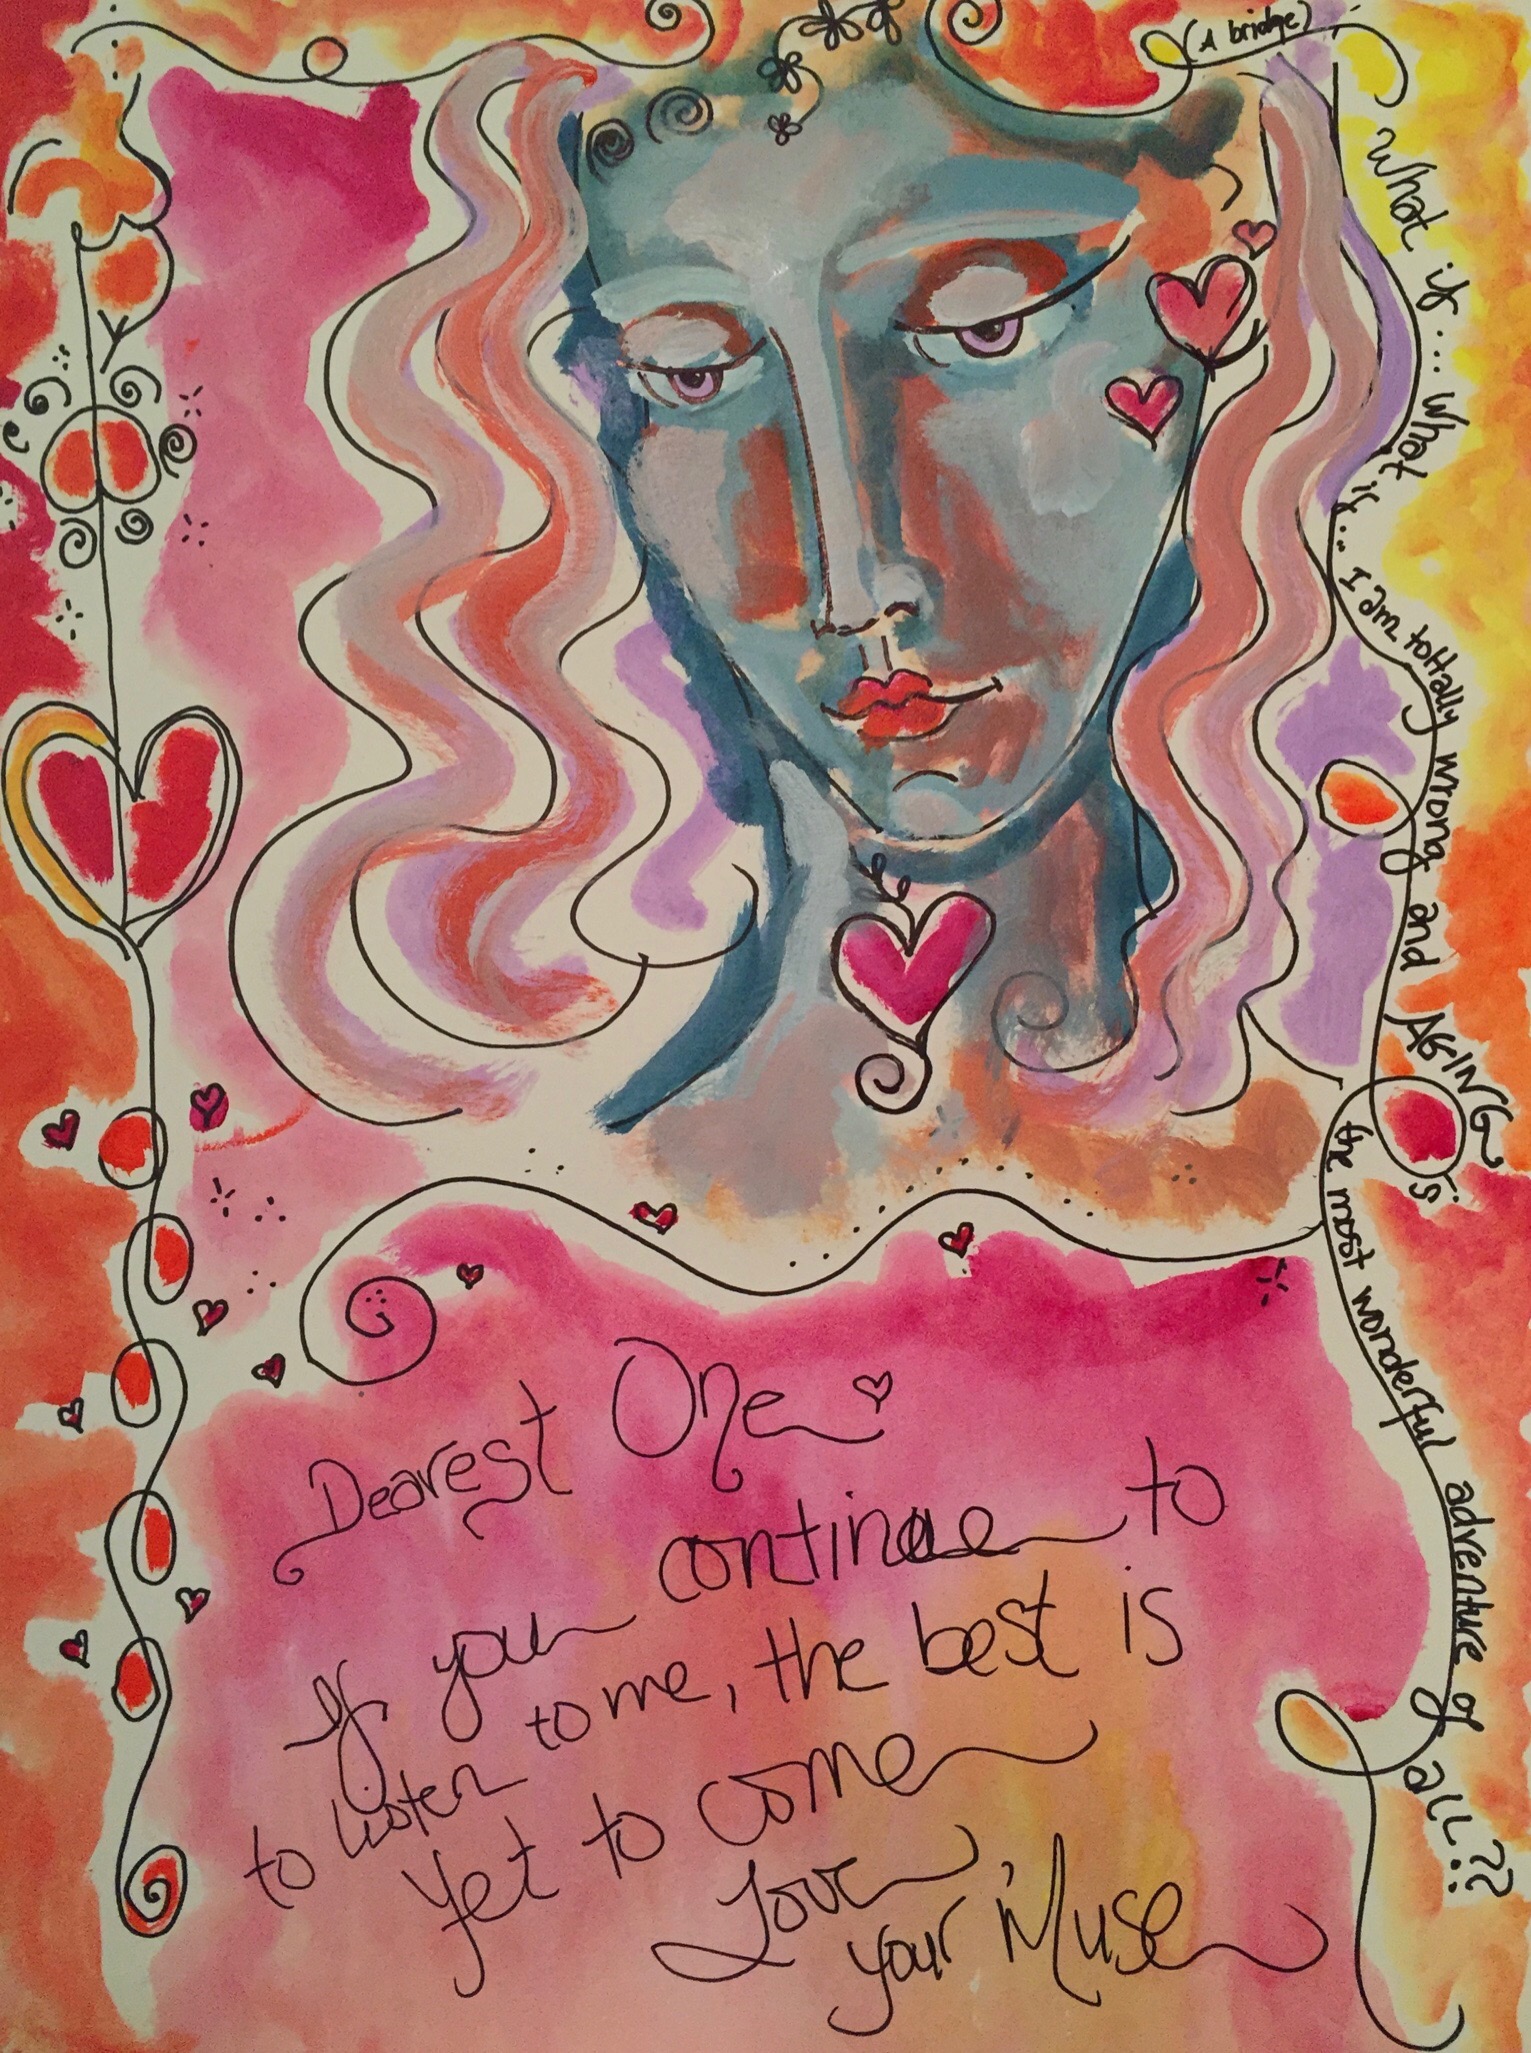 (A bridge)
What if.... What if... I am tottally wrong and AGING is
the most wonderful adventure of ALL??
Dearest One
If you continue to
to listen to me, the best is
yet to come
Love
your Muse